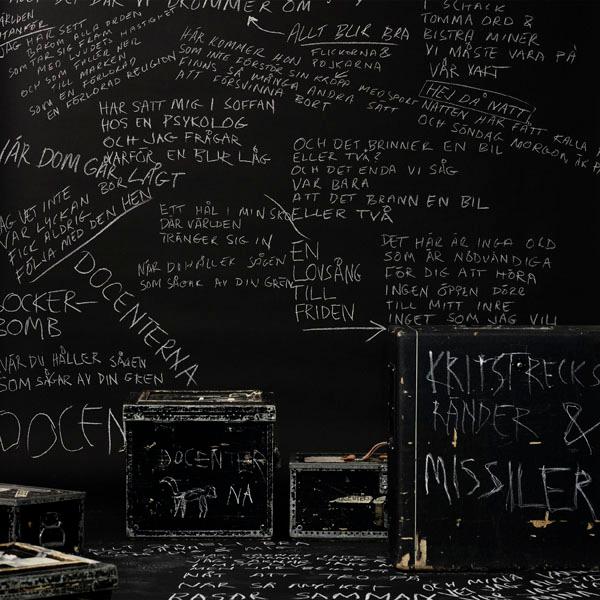 DRÖMMER OM
VÄRLDEN
JAG HAR SETT
BAKOM ALLA ORDEN
SOM TAR SIG FRAM
MED LJUDETS HASTIGHET
OCH SOM FALLER NER
TILL MARKEN
SOM EN FÖRLORAD
EN FÖRLORAD RELIGION
ALLT BLIR BRA
FLICKORNA &
POJKARNA
HÄR KOMMER HON
SOM INTE FÖRSTÅR SIN KROPP
FINNS SÅ MÅNGA ANDRA SÄTT
ATT FÖRSVINNA BORT
MED SPORT
I SCHACK
TOMMA ORD &
BISTRA MINER
VI MÅSTE VARA PÅ
VÅR VAKT
HEJ DÅ NATT!
NATTEN HAR FÅTT KALLA
OCH SÖNDAG MORGON ÄR
HAR SATT MIG I SOFFAN
HOS EN PSYKOLOG
OCH JAG FRÅGAR
VARFÖR EN BLIR LÅG
NÄR DOM GÅR LÅGT
BOR
OCH DET BRINNER EN BIL
ELLER TVÅ?
OCH DET ENDA VI SÅG
VAR BARA
ATT DET BRANN EN BIL
ELLER TVÅ
JAG VET INTE
VAR LYCKAN
FICK ALDRIG
FÖLJA MED DEN HEM
ETT HÅL I MIN
DÄR VÄRLDEN
TRÄNGER SIG IN
NÄR DU HÅLLER SÅGEN
SOM SÅGAR AV DIN GREN
EN
LOVSÅNG
TILL
FRIDEN
DET HÄR ÄR INGA ORD
SOM ÄR NÖDVÄNDIGA
FÖR DIG ATT HÖRA
INGEN ÖPPEN DÖRR
TILL MITT INRE
INGET SOM JAG VILL
DOCENTERNA
SOCKER-
BOMB
NÄR DU HÅLLER SÅGEN
SOM SÅGAR AV DIN GREN
DOCEN
DOCENTER
NA
KRITSTRECKS
RÄNDER &
MISSILER
NÄT ATT
NÄR SÅ MYCKET
OCH MINA
RASAR SAMMAN